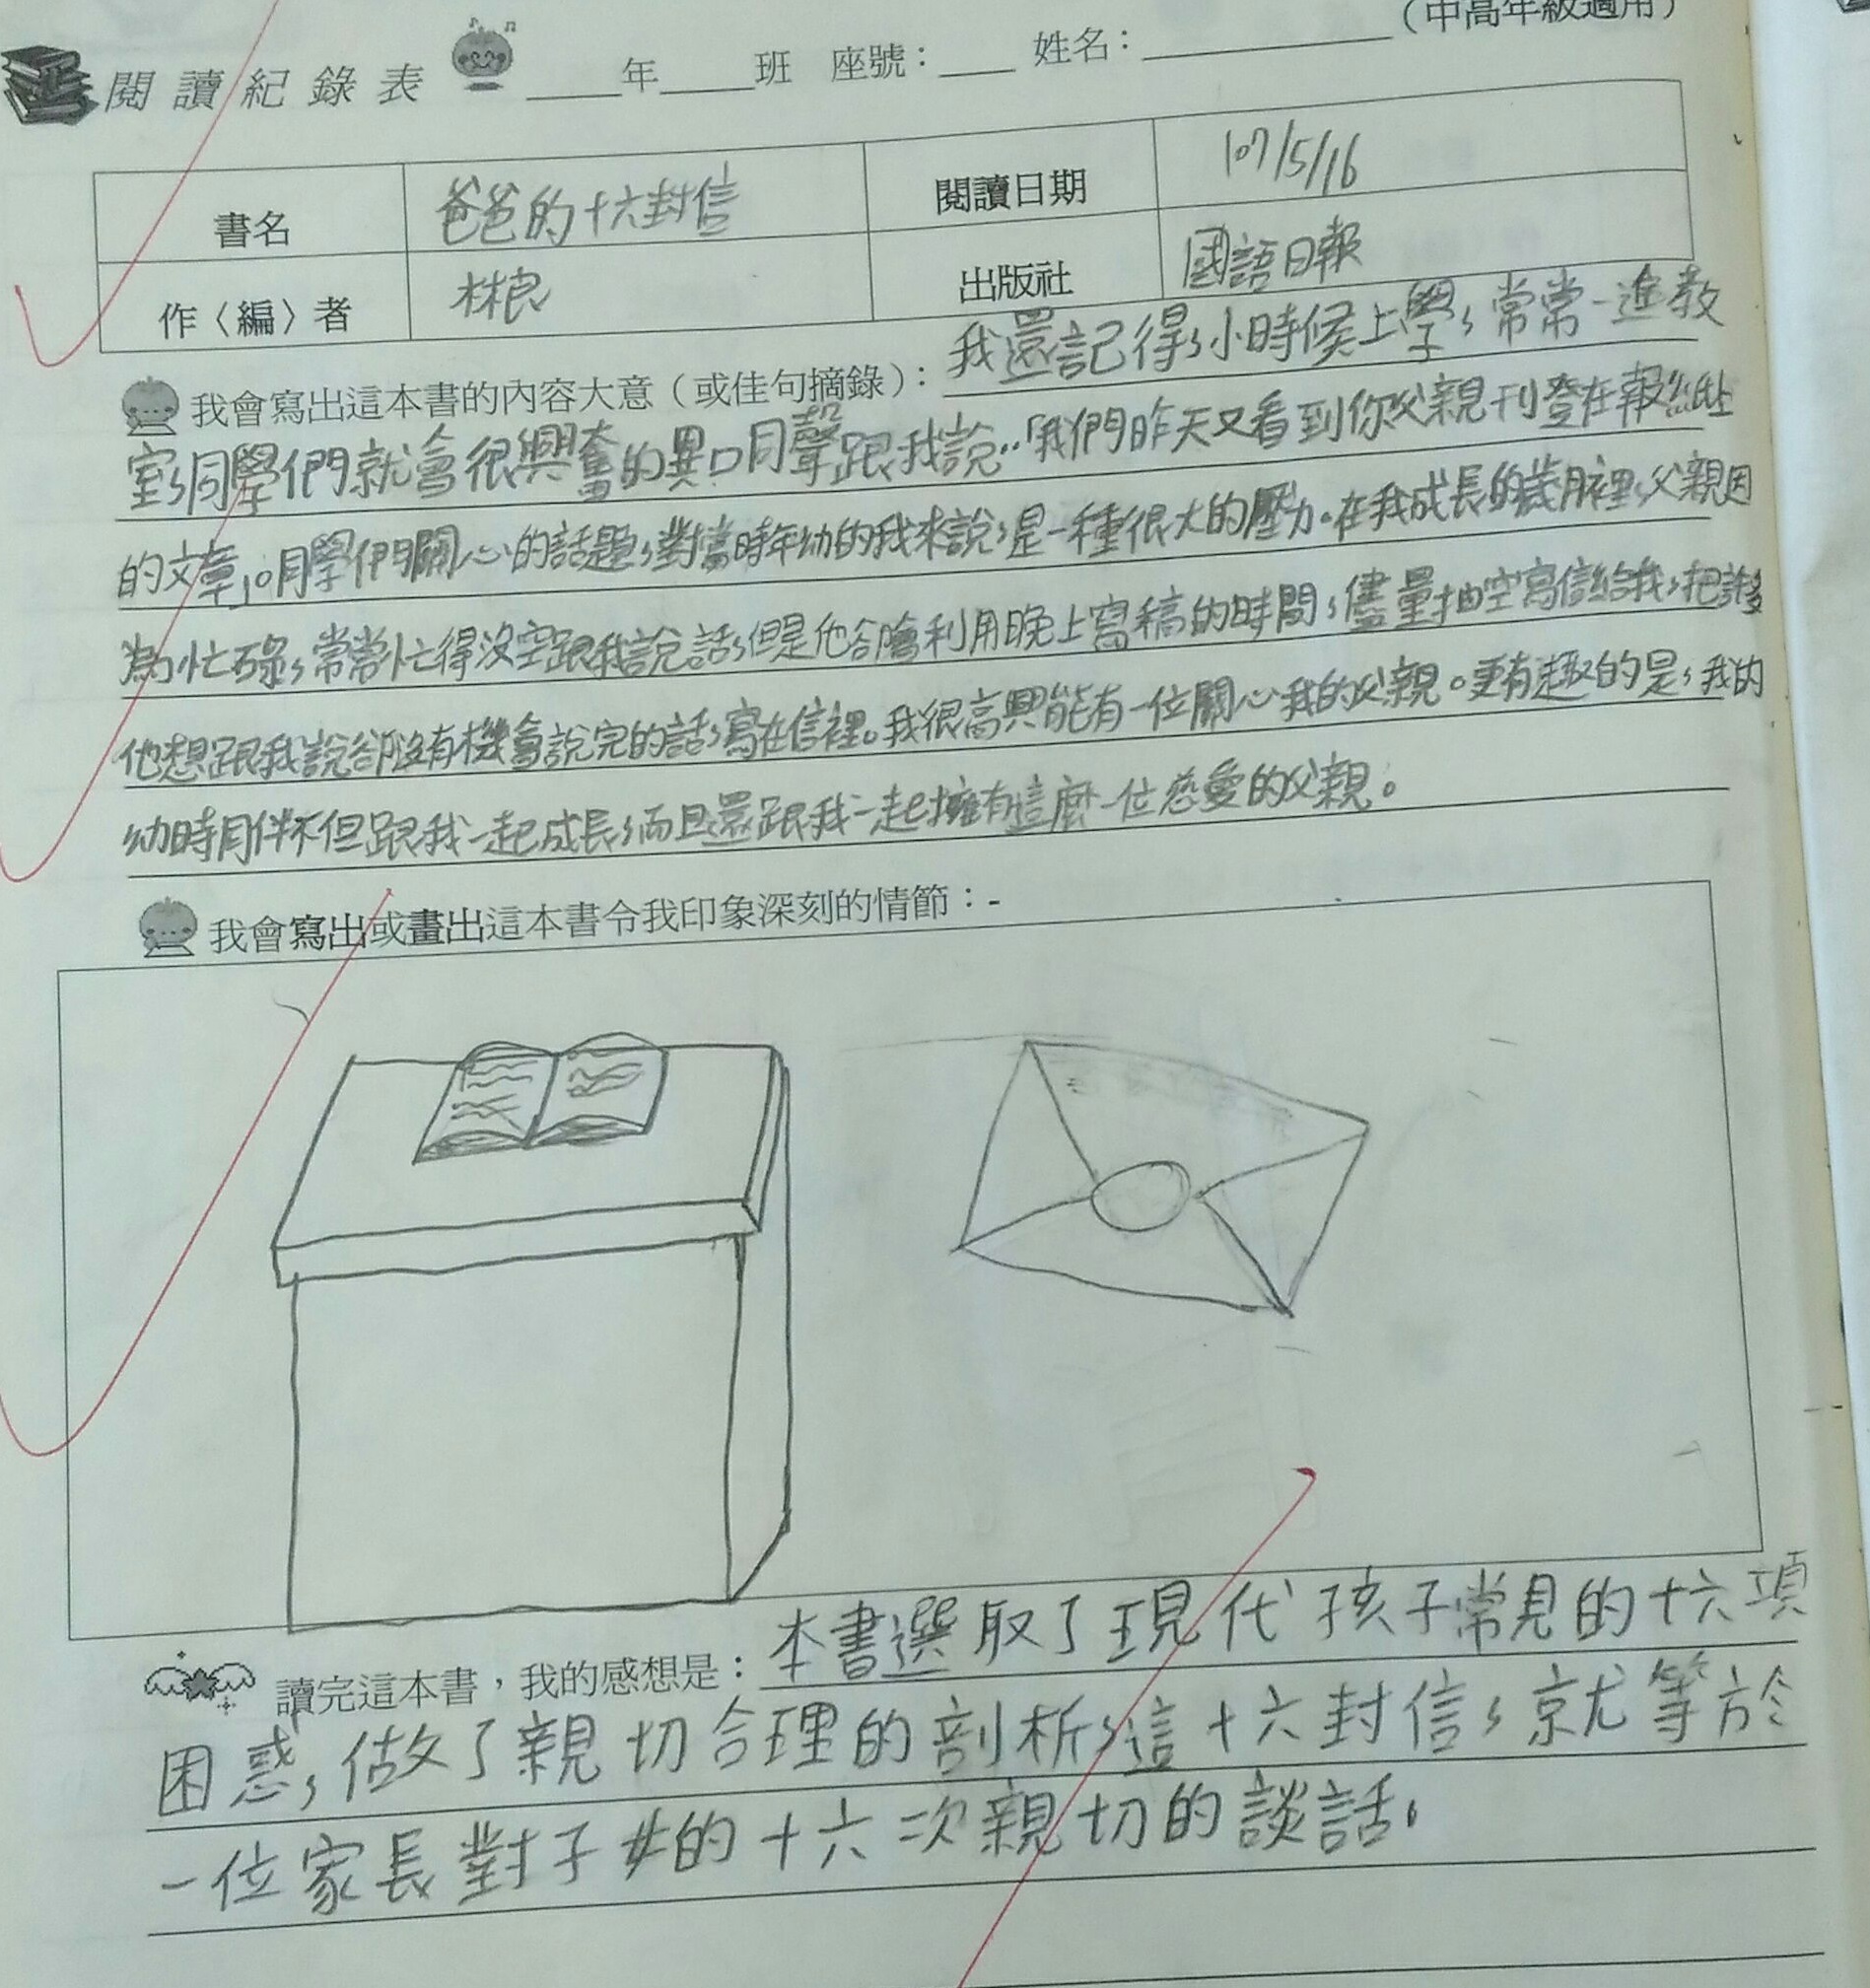 (中高年級適用)
閱讀紀錄表 ____年____班 座號：___ 姓名：__________
書名 爸爸的十六封信 閱讀日期 107/5/16
作〈編〉者 林良 出版社 國語日報
我會寫出這本書的內容大意（或佳句摘錄）：我還記得，小時候上學，常常一進教
室，同學們就會很興奮的異口同聲跟我說：「我們昨天又看到你父親刊登在報紙上
的文章」。同學們關心的話題，對當時年幼的我來說，是一種很大的壓力。在我成長的歲月裡，父親因
為忙碌，常常忙得沒空跟我說話，但是他卻會利用晚上寫稿的時間，儘量抽空寫信給我，把許多
他想跟我說卻沒有機會說完的話，寫在信裡。我很高興能有一位關心我的父親。更有趣的是，我的
幼時同伴不但跟我一起成長，而且還跟我一起擁有這麼一位慈愛的父親。
我會寫出或畫出這本書令我印象深刻的情節：-
讀完這本書，我的感想是：本書選取了現代孩子常見的十六項
困惑，做了親切合理的剖析，這十六封信，就等於
一位家長對子女的十六次親切的談話。